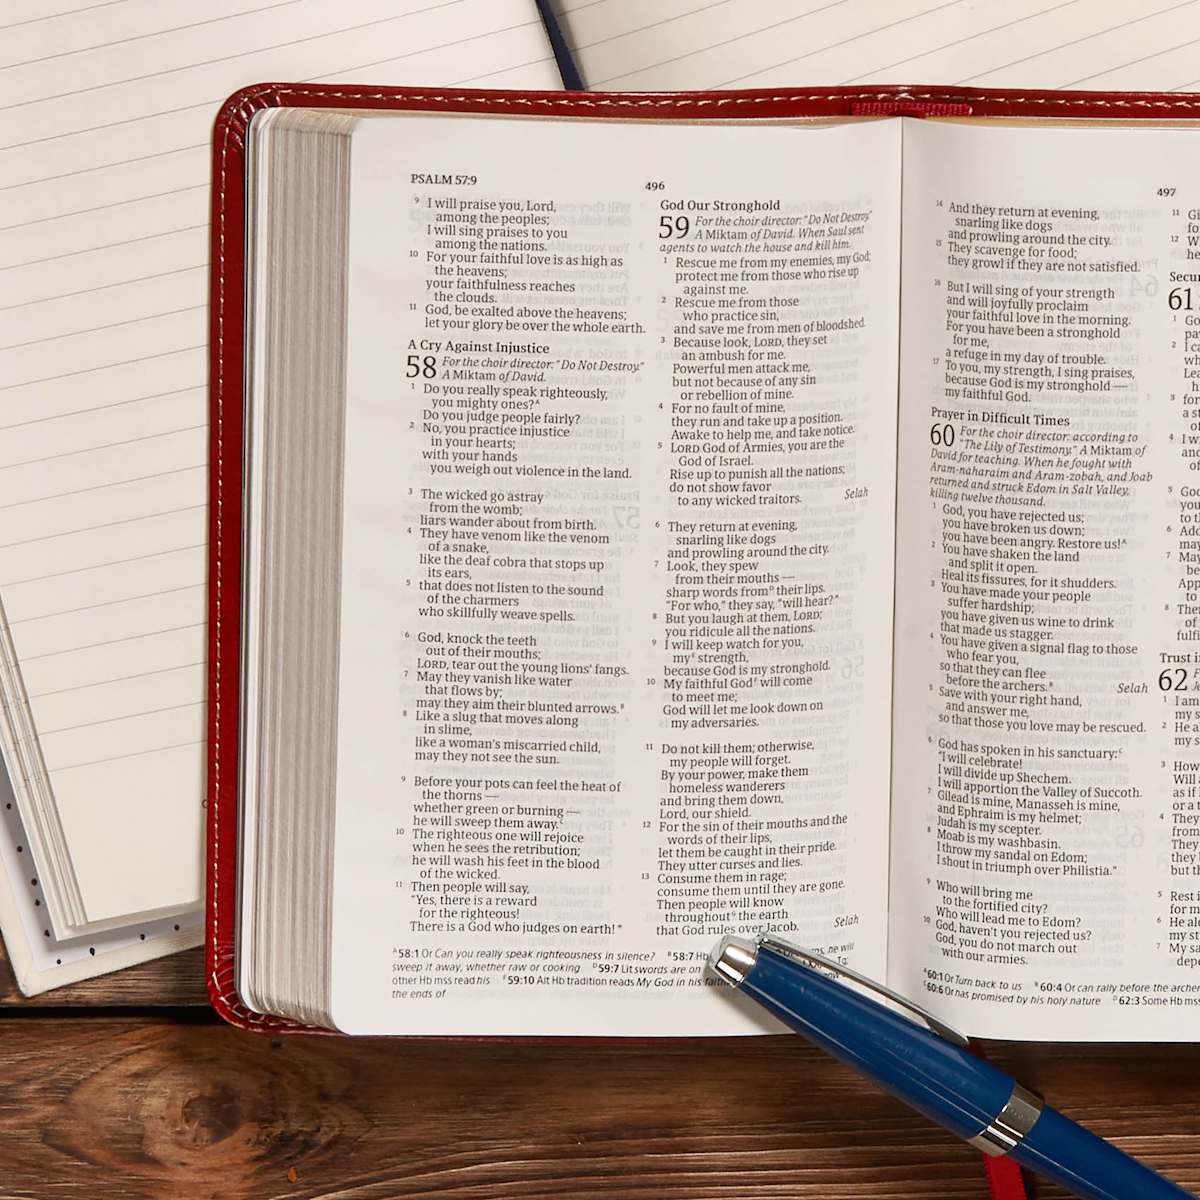 PSALM 57:9
496
⁹ I will praise you, Lord,
among the peoples;
I will sing praises to you
among the nations.
¹⁰ For your faithful love is as high as
the heavens;
your faithfulness reaches
the clouds.
¹¹ God, be exalted above the heavens;
let your glory be over the whole earth.
A Cry Against Injustice
58 For the choir director: “Do Not Destroy.”
A Miktam of David.
¹ Do you really speak righteously,
you mighty ones?ᴬ
Do you judge people fairly?
² No, you practice injustice
in your hearts;
with your hands
you weigh out violence in the land.
³ The wicked go astray
from the womb;
liars wander about from birth.
⁴ They have venom like the venom
of a snake,
like the deaf cobra that stops up
its ears,
⁵ that does not listen to the sound
of the charmers
who skillfully weave spells.
⁶ God, knock the teeth
out of their mouths;
LORD, tear out the young lions’ fangs.
⁷ May they vanish like water
that flows by;
may they aim their blunted arrows.ᴮ
⁸ Like a slug that moves along
in slime,
like a woman’s miscarried child,
may they not see the sun.
⁹ Before your pots can feel the heat of
the thorns —
whether green or burning —
he will sweep them away.ᶜ
¹⁰ The righteous one will rejoice
when he sees the retribution;
he will wash his feet in the blood
of the wicked.
¹¹ Then people will say,
“Yes, there is a reward
for the righteous!
There is a God who judges on earth!”
God Our Stronghold
59 For the choir director: “Do Not Destroy.”
A Miktam of David. When Saul sent
agents to watch the house and kill him.
¹ Rescue me from my enemies, my God;
protect me from those who rise up
against me.
² Rescue me from those
who practice sin,
and save me from men of bloodshed.
³ Because look, LORD, they set
an ambush for me.
Powerful men attack me,
but not because of any sin
or rebellion of mine.
⁴ For no fault of mine,
they run and take up a position.
Awake to help me, and take notice.
⁵ LORD God of Armies, you are the
God of Israel.
Rise up to punish all the nations;
do not show favor
to any wicked traitors. Selah
⁶ They return at evening,
snarling like dogs
and prowling around the city.
⁷ Look, they spew
from their mouths —
sharp words fromᴰ their lips.
“For who,” they say, “will hear?”
⁸ But you laugh at them, LORD;
you ridicule all the nations.
⁹ I will keep watch for you,
myᴱ strength,
because God is my stronghold.
¹⁰ My faithful Godᶠ will come
to meet me;
God will let me look down on
my adversaries.
¹¹ Do not kill them; otherwise,
my people will forget.
By your power, make them
homeless wanderers
and bring them down,
Lord, our shield.
¹² For the sin of their mouths and the
words of their lips,
let them be caught in their pride.
They utter curses and lies.
¹³ Consume them in rage;
consume them until they are gone.
Then people will know
throughoutᴳ the earth
that God rules over Jacob. Selah
ᴬ58:1 Or Can you really speak righteousness in silence? ᴮ58:7 Hb he will
sweep it away, whether raw or cooking ᴰ59:7 Lit swords are on
other Hb mss read his ᶠ59:10 Alt Hb tradition reads My God in his faithful
the ends of
497
¹⁴ And they return at evening,
snarling like dogs
and prowling around the city.
¹⁵ They scavenge for food;
they growl if they are not satisfied.
¹⁶ But I will sing of your strength
and will joyfully proclaim
your faithful love in the morning.
For you have been a stronghold
for me,
a refuge in my day of trouble.
¹⁷ To you, my strength, I sing praises,
because God is my stronghold —
my faithful God.
Prayer in Difficult Times
60 For the choir director: according to
“The Lily of Testimony.” A Miktam of
David for teaching. When he fought with
Aram-naharaim and Aram-zobah, and Joab
returned and struck Edom in Salt Valley,
killing twelve thousand.
¹ God, you have rejected us;
you have broken us down;
you have been angry. Restore us!ᴬ
² You have shaken the land
and split it open.
Heal its fissures, for it shudders.
³ You have made your people
suffer hardship;
you have given us wine to drink
that made us stagger.
⁴ You have given a signal flag to those
who fear you,
so that they can flee
before the archers.ᴮ Selah
⁵ Save with your right hand,
and answer me,
so that those you love may be rescued.
⁶ God has spoken in his sanctuary:ᶜ
“I will celebrate!
I will divide up Shechem.
I will apportion the Valley of Succoth.
⁷ Gilead is mine, Manasseh is mine,
and Ephraim is my helmet;
Judah is my scepter.
⁸ Moab is my washbasin.
I throw my sandal on Edom;
I shout in triumph over Philistia.”
⁹ Who will bring me
to the fortified city?
Who will lead me to Edom?
¹⁰ God, haven’t you rejected us?
God, you do not march out
with our armies.
ᴬ60:1 Or Turn back to us ᴮ60:4 Or can rally before the
ᶜ60:6 Or has promised by his holy nature ᴰ62:3 Some Hb mss
61
62